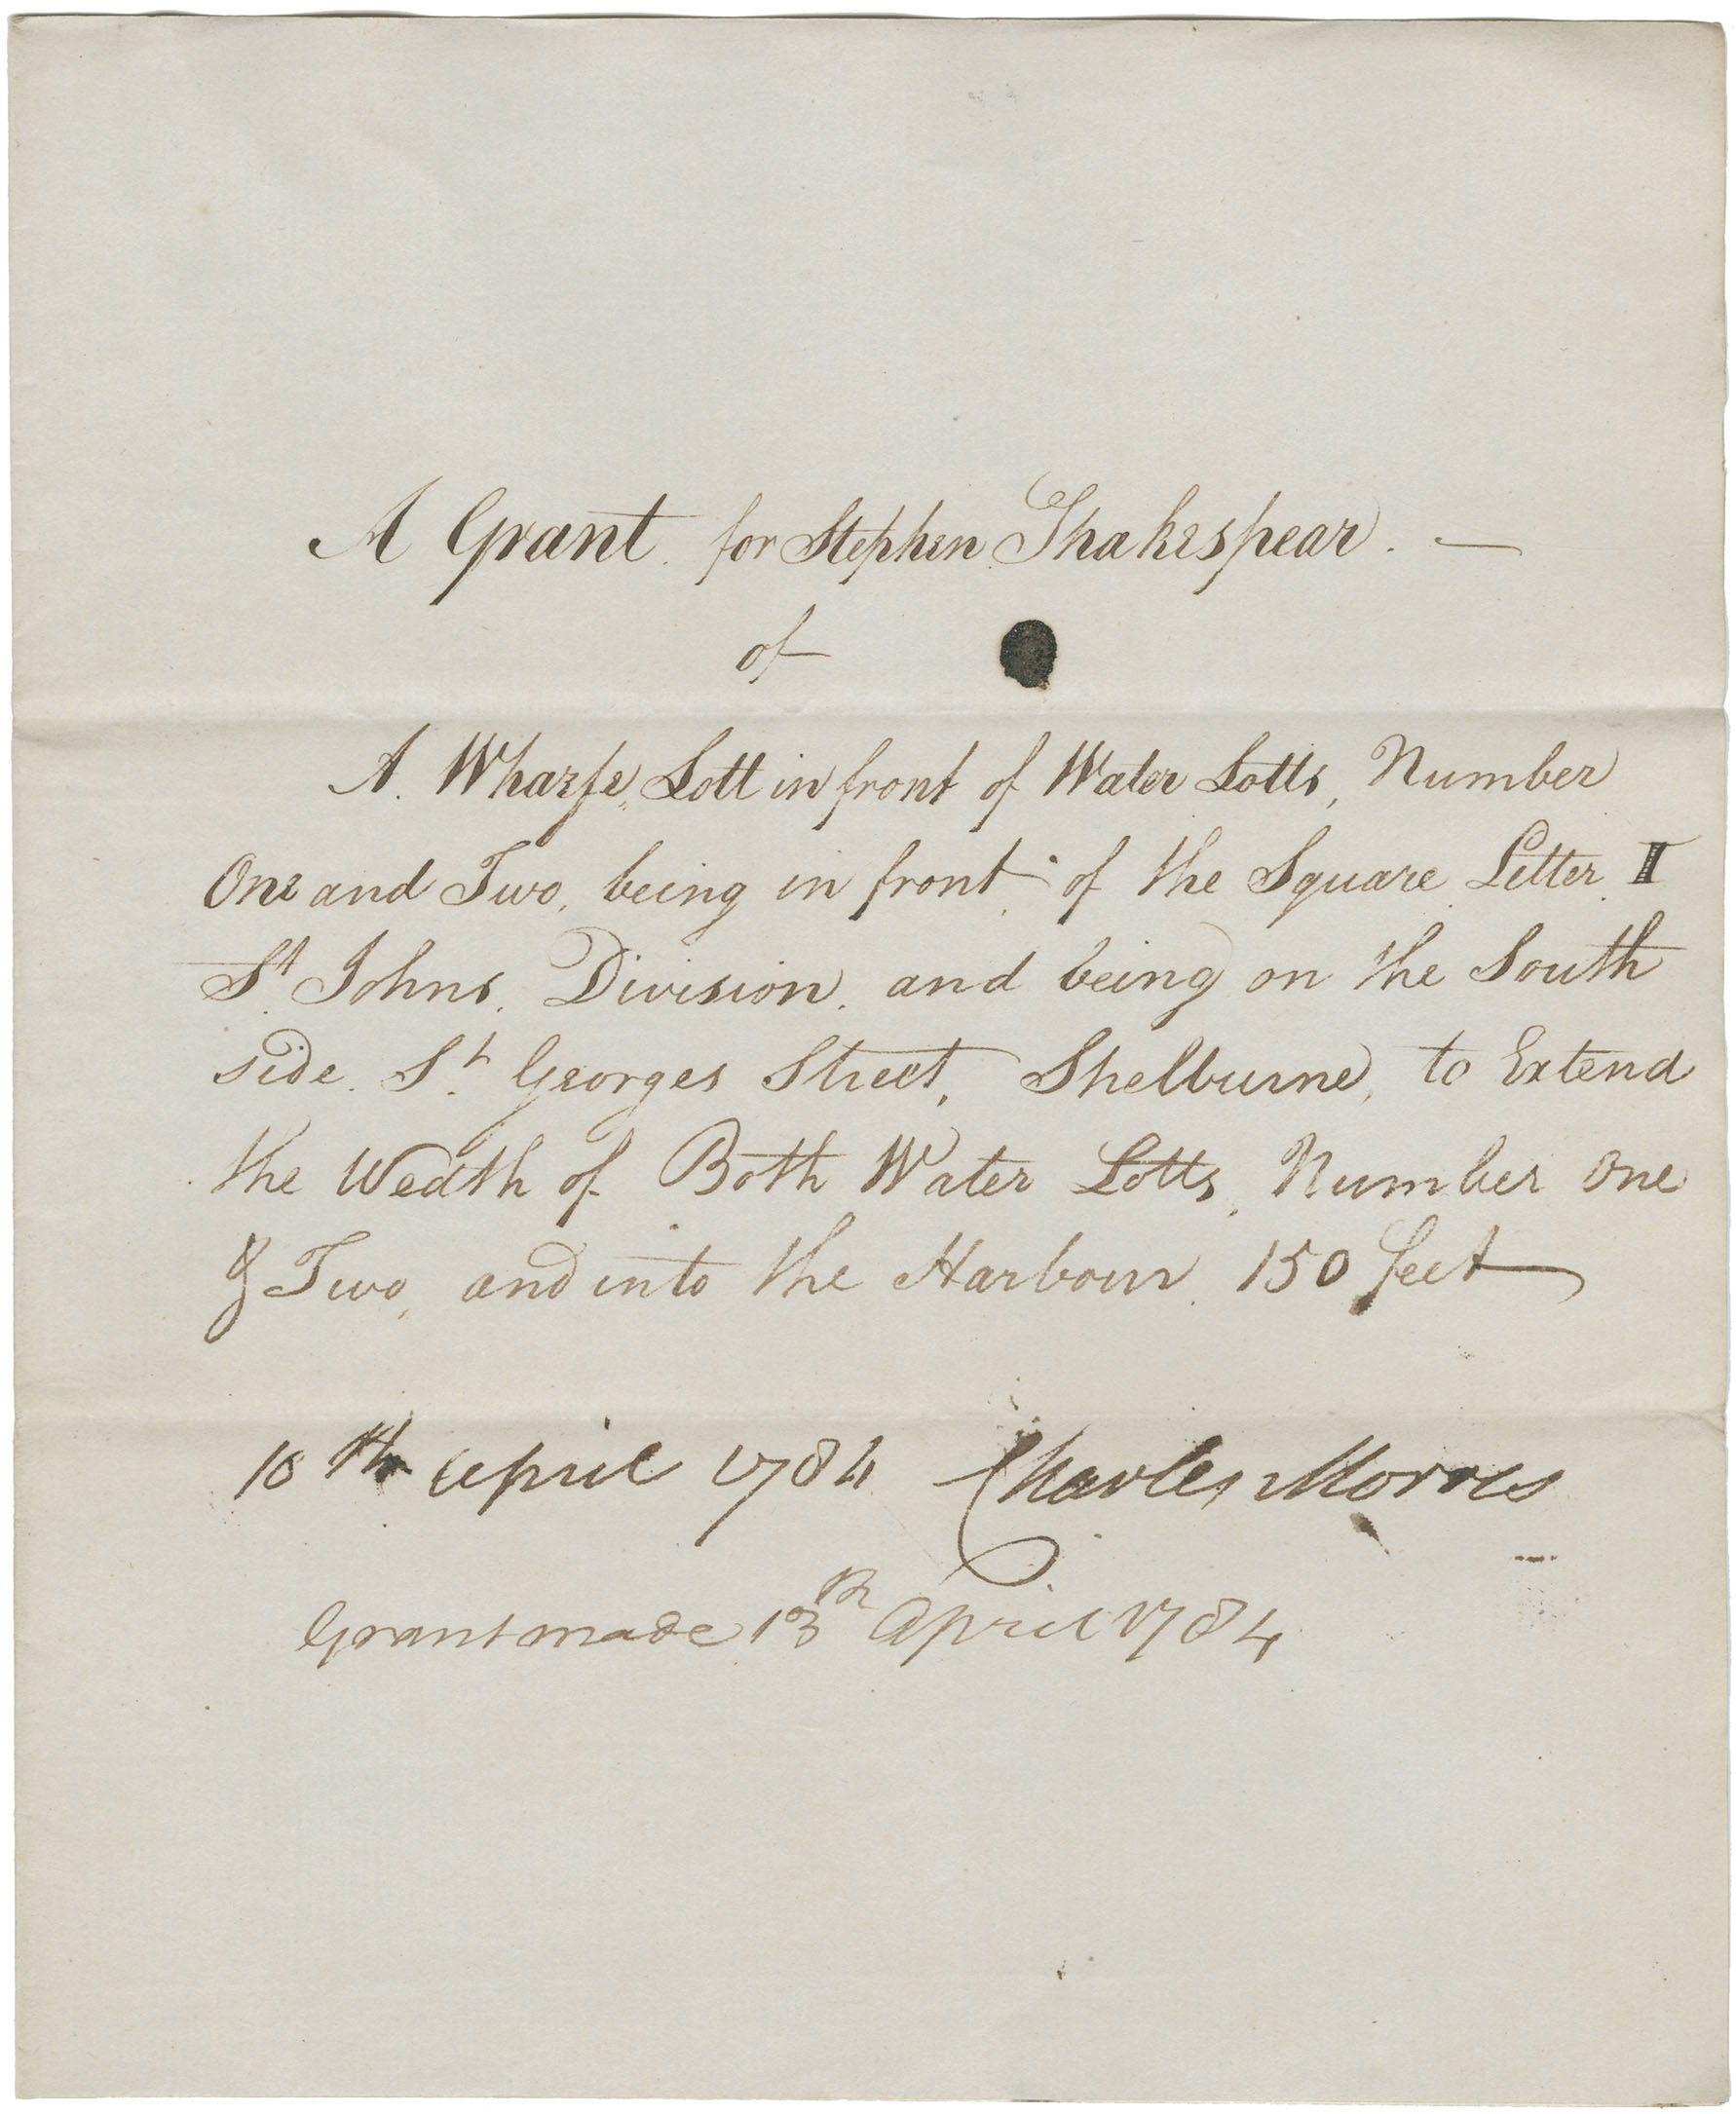 A Grant. for Stephen Shakespear. —
of
A. Wharfe, Lott in front of Water Lotts, Number
One and Two, being in front of the Square Letter II
St. Johns. Division. and being on the South
side. St. Georges Street, Shelburne, to Extend
the Wedth of Both Water Lotts, Number One
& Two, and into the Harbour. 150 feet
10th april 1784 Charles Morris
Grant made 13th April 1784